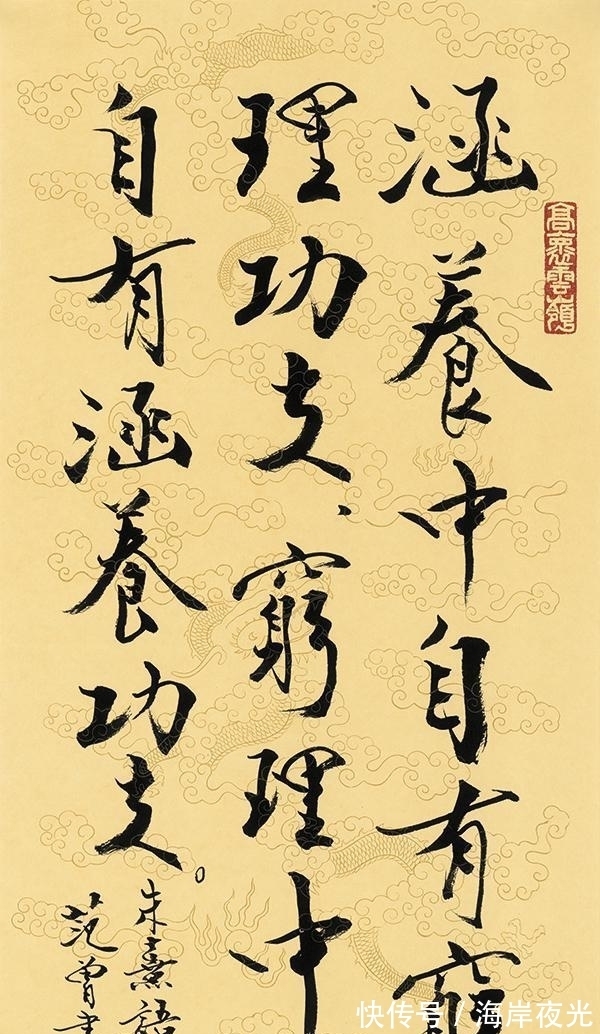 涵養中自有窮
理功夫、窮理中
自有涵養功夫。
朱熹語
范曾書
快传号/海岸夜光